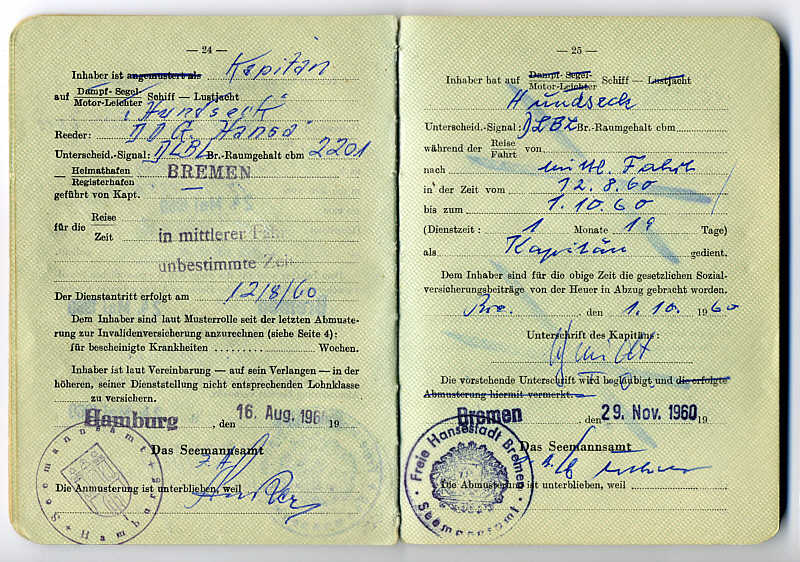 — 24 —
Inhaber ist angemustert als Kapitän
auf Dampf- Segel- Schiff — Lustjacht
Motor-Leichter
"Hundseck"
Reeder: DDG. Hansa
Unterscheid.-Signal: DLBL Br.-Raumgehalt cbm 2201
Heimathafen BREMEN
Registerhafen
geführt von Kapt.
für die Reise
Zeit in mittlerer Fahrt
unbestimmte Zeit
Der Dienstantritt erfolgt am 12/8/60
Dem Inhaber sind laut Musterrolle seit der letzten Abmuste-
rung zur Invalidenversicherung anzurechnen (siehe Seite 4):
für bescheinigte Krankheiten ......... Wochen.
Inhaber ist laut Vereinbarung — auf sein Verlangen — in der
höheren, seiner Dienststellung nicht entsprechenden Lohnklasse
zu versichern.
Hamburg, den 16. Aug. 1960 19
Das Seemannsamt
Die Anmusterung ist unterblieben, weil
Seemannsamt Hamburg
— 25 —
Inhaber hat auf Dampf- Segel- Schiff — Lustjacht
Motor-Leichter
Hundseck
Unterscheid.-Signal: DLBL Br.-Raumgehalt cbm
während der Reise von
Fahrt
nach mittl. Fahrt
in der Zeit vom 12.8.60
bis zum 1.10.60
(Dienstzeit: 1 Monate 19 Tage)
als Kapitän gedient.
Dem Inhaber sind für die obige Zeit die gesetzlichen Sozial-
versicherungsbeiträge von der Heuer in Abzug gebracht worden.
Bre. den 1.10. 1960
Unterschrift des Kapitäns:
Die vorstehende Unterschrift wird beglaubigt und die erfolgte
Abmusterung hiermit vermerkt.
Bremen, den 29. Nov. 1960 19
Das Seemannsamt
Die Abmusterung ist unterblieben, weil
Freie Hansestadt Bremen
Seemannsamt